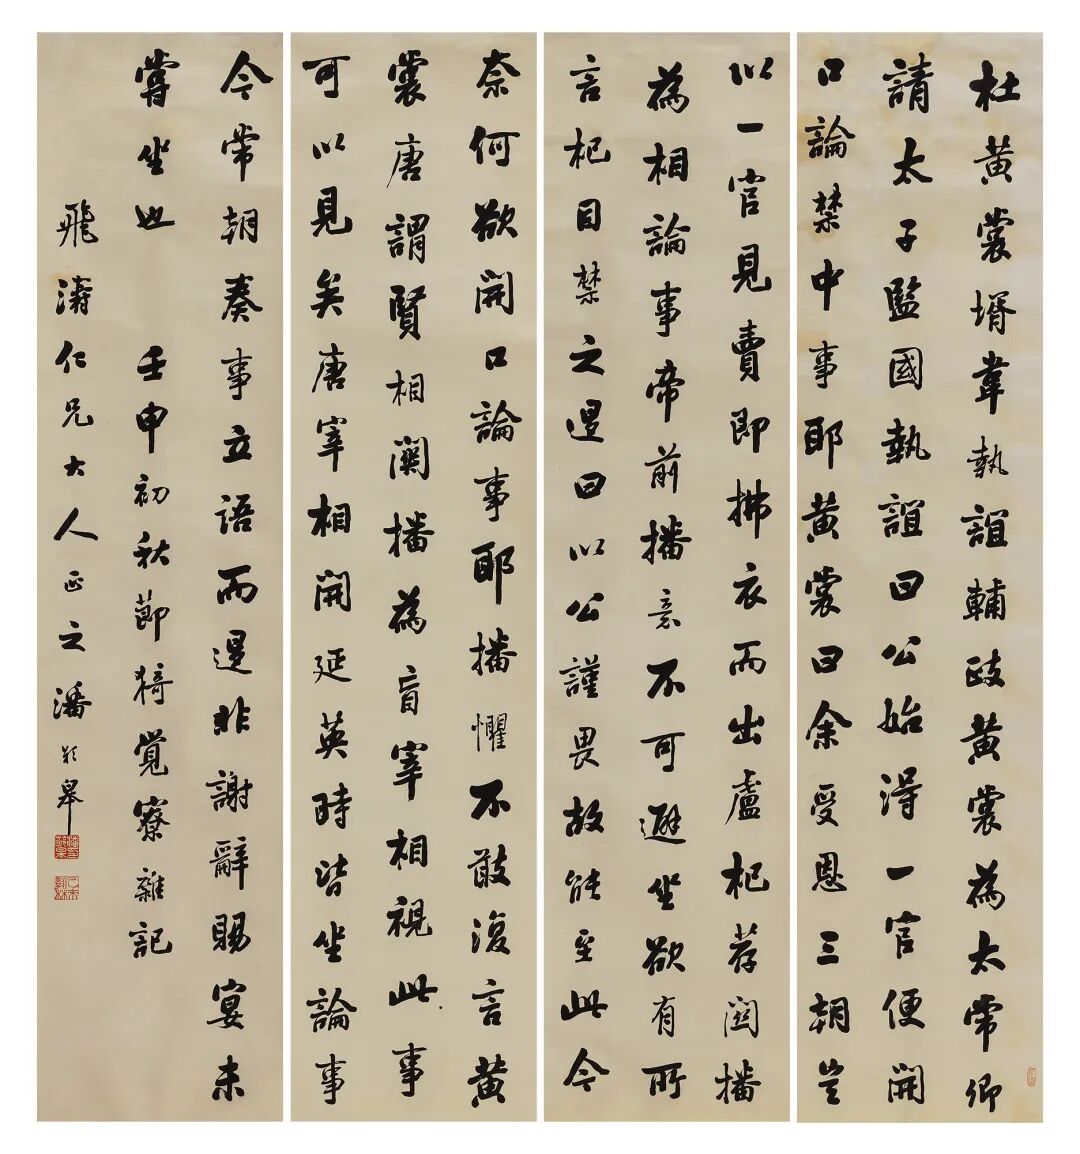 杜黃裳壻韋執誼輔政黃裳為太常卿
請太子監國執誼曰公始得一官便開
口論禁中事耶黃裳曰余受恩三朝豈
以一官見賣即拂衣而出盧杞荐關播
為相論事帝前播意不可避坐欲有所
言杞目禁之退曰以公謹畏故能至此今
奈何欲開口論事耶播懼不敢復言黃
裳唐謂賢相關播為盲宰相視此事
可以見矣唐宰相開延英時皆坐論事
今常朝奏事立語而退非謝辭賜宴未
嘗坐也 壬申初秋節猗覺寮雜記
飛濤仁兄大人正之潘齡皋